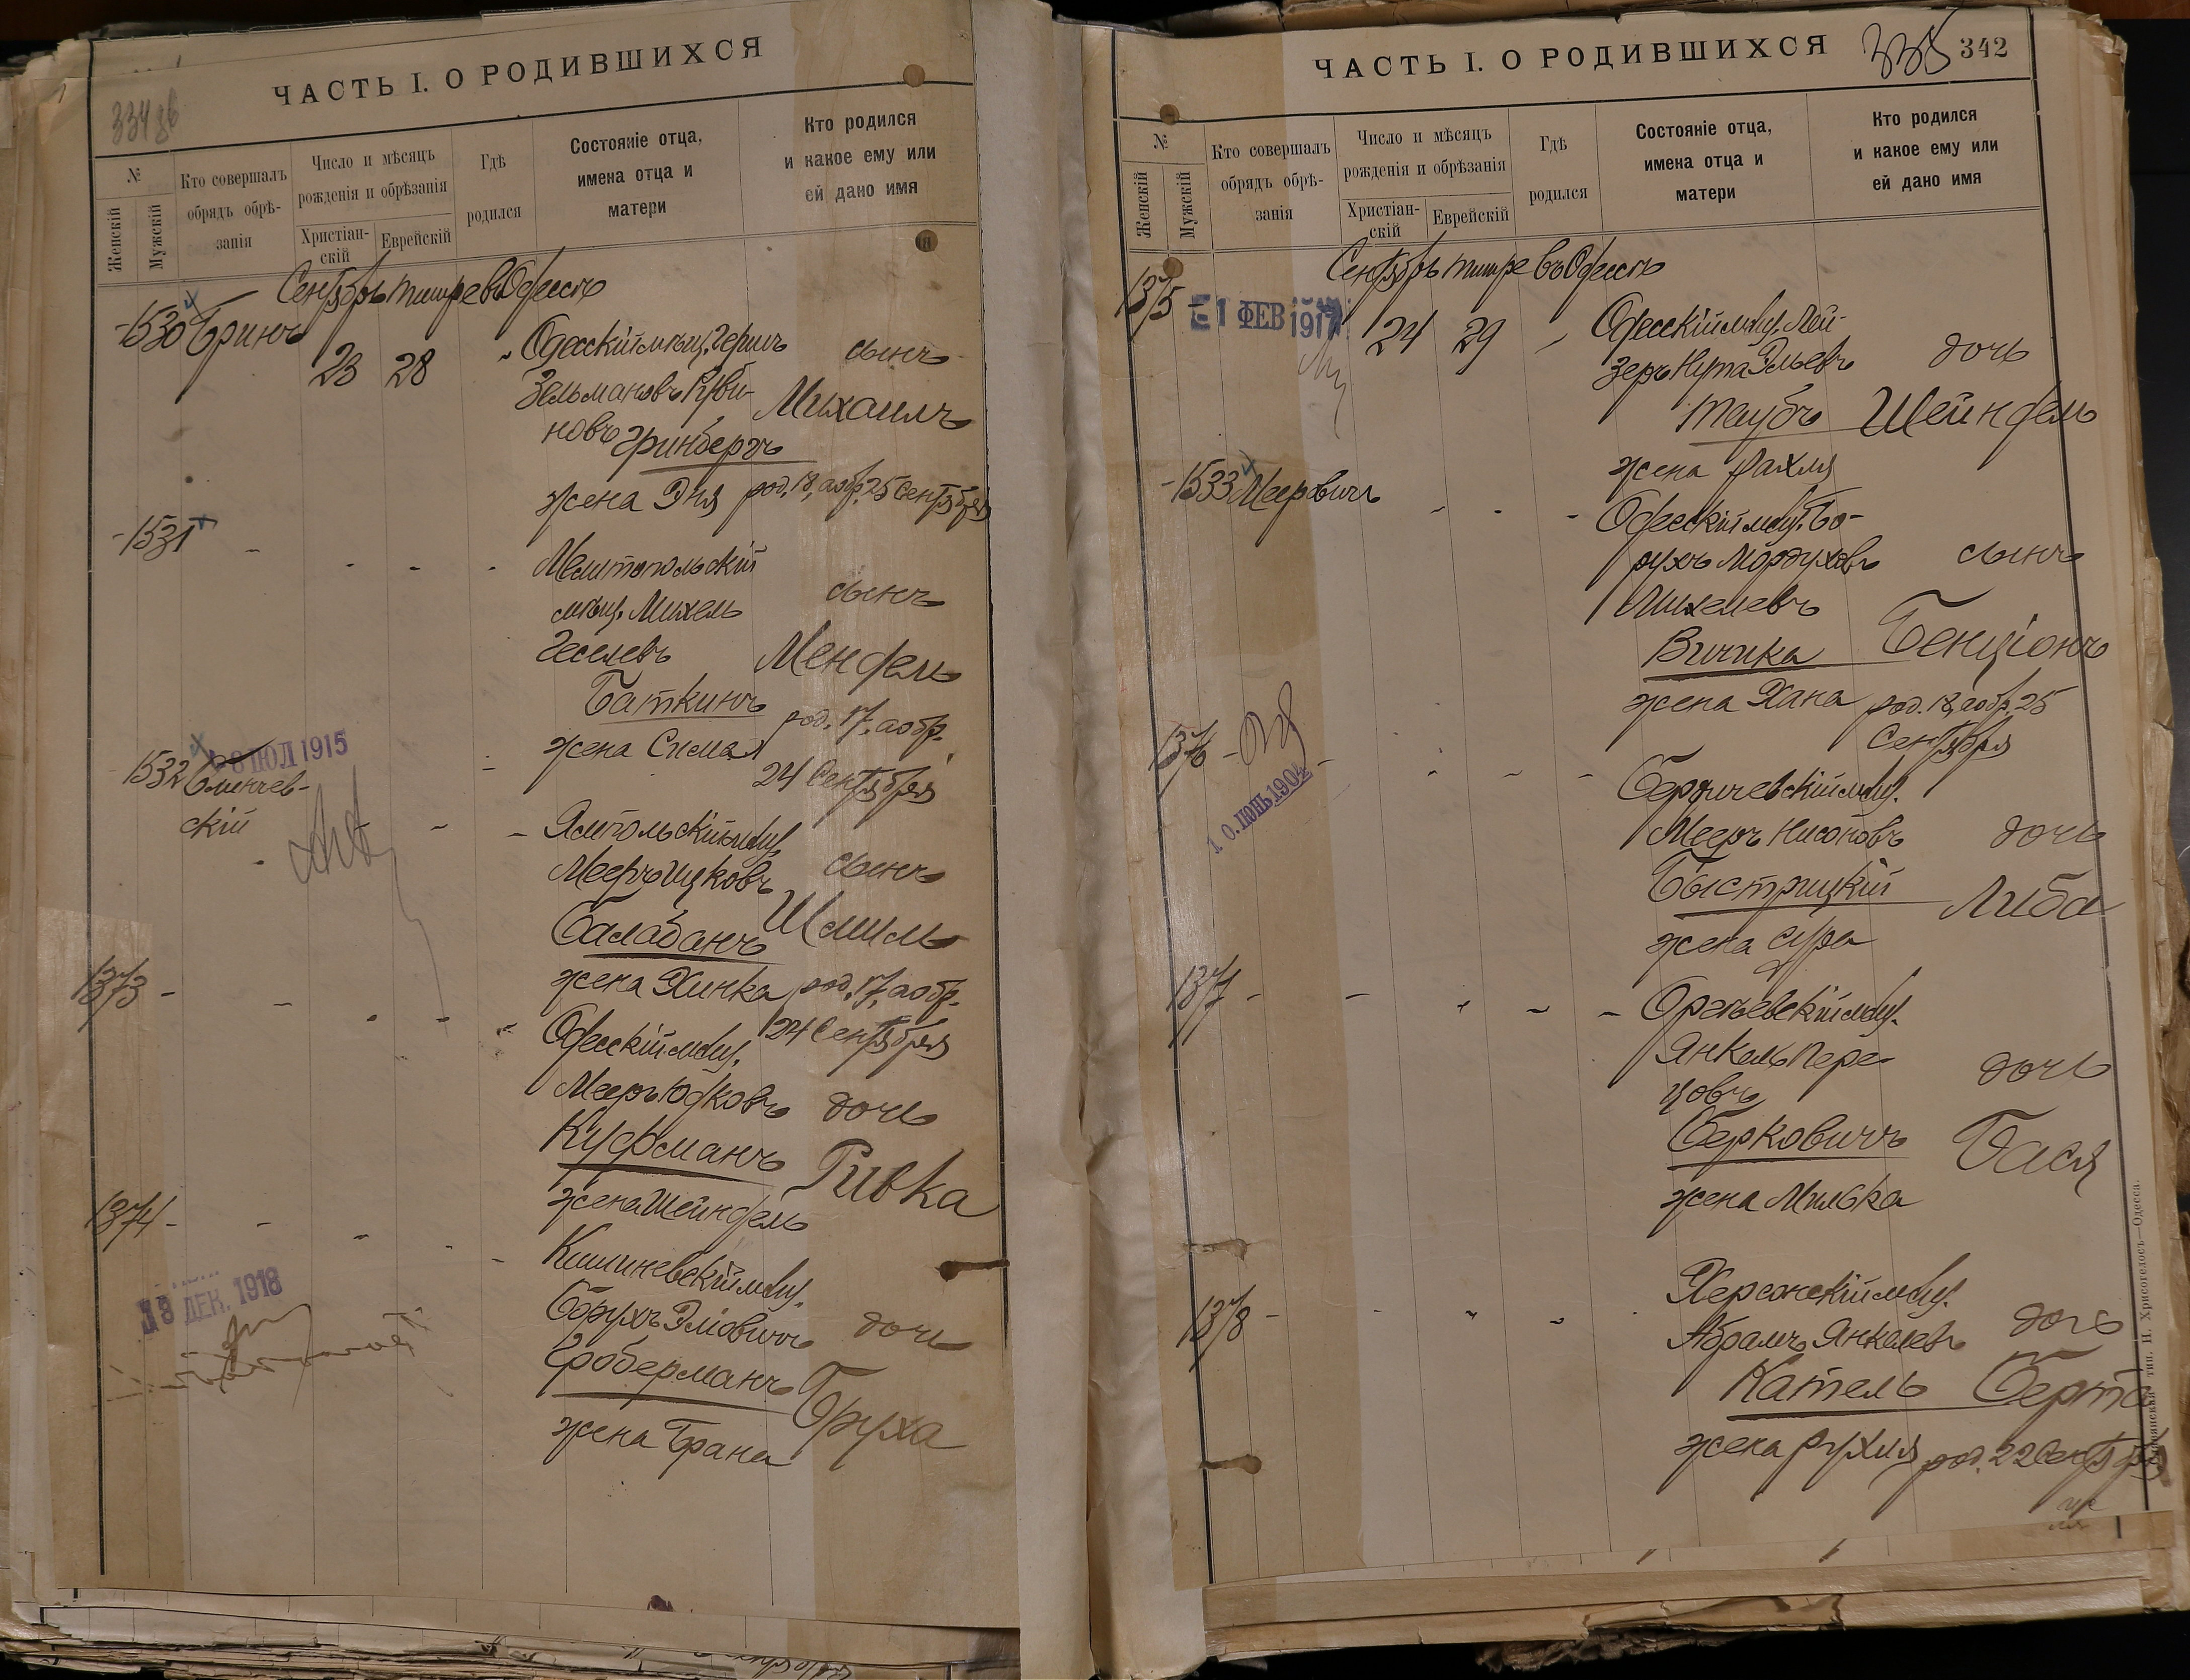 ЧАСТЬ I. О РОДИВШИХСЯ
334 об
№
Женскій
Мужскій
Кто совершалъ
обрядъ обрѣ-
занія
Число и мѣсяцъ
рожденія и обрѣзанія
Христіан-
скій
Еврейскій
Гдѣ
родился
Состояніе отца,
имена отца и
матери
Кто родился
и какое ему или
ей дано имя
Сентябрь тишре въ Одессѣ
1530 Бринъ
23 28
Одесскій мѣщ. Гершъ
Зельмановъ Руви-
новъ Гринбергъ
жена Эня
сынъ
Михаилъ
род. 18, а обр. 25 Сентября
1531
Мелитопольскій
мѣщ. Михель
Геселевъ
Баткинъ
жена Сима
сынъ
Мендель
род. 17, а обр.
24 Сентября
1532
ІЮЛ 1915
скій
Ямпольскій мѣщ.
Мееръ Ицковъ
Балабанъ
жена Хинка
сынъ
Шмиль
род. 17, а обр.
24 Сентября
1373
Одесскій мѣщ.
Мееръ Юдковъ
Куфманъ
жена Шейндель
дочь
Ривка
1374
18 ДЕК. 1918
Кишиневскій мѣщ.
Борухъ Эліовичъ
Гроберманъ
жена Брана
дочь
Бруха
ЧАСТЬ I. О РОДИВШИХСЯ
335 342
№
Женскій
Мужскій
Кто совершалъ
обрядъ обрѣ-
занія
Число и мѣсяцъ
рожденія и обрѣзанія
Христіан-
скій
Еврейскій
Гдѣ
родился
Состояніе отца,
имена отца и
матери
Кто родился
и какое ему или
ей дано имя
Сентябрь тишре въ Одессѣ
1375
1 ФЕВ 1917
24 29
Одесскій мѣщ. Лей-
зеръ Нута Эльевъ
Таубъ
жена Рахля
дочь
Шейндель
1533 Мееровичъ
Одесскій мѣщ. Бо-
рухъ Мордуховъ
Михелевъ
Вичика
жена Хана
сынъ
Бенціонъ
род. 18, а обр. 25
Сентября
1376
10. ІЮНЬ 1904
Бердичевскій мѣщ.
Мееръ Нисоновъ
Быстрицкій
жена Сура
дочь
Либа
1377
Оргѣевскій мѣщ.
Янкель Пере-
цовъ
Берковичъ
жена Милька
дочь
Бася
1378
Херсонскій мѣщ.
Абрамъ Янкелевъ
Катель
жена Рухля
дочь
Берта
род. 22 Сентября
тип. И. Христогелосъ—Одесса.